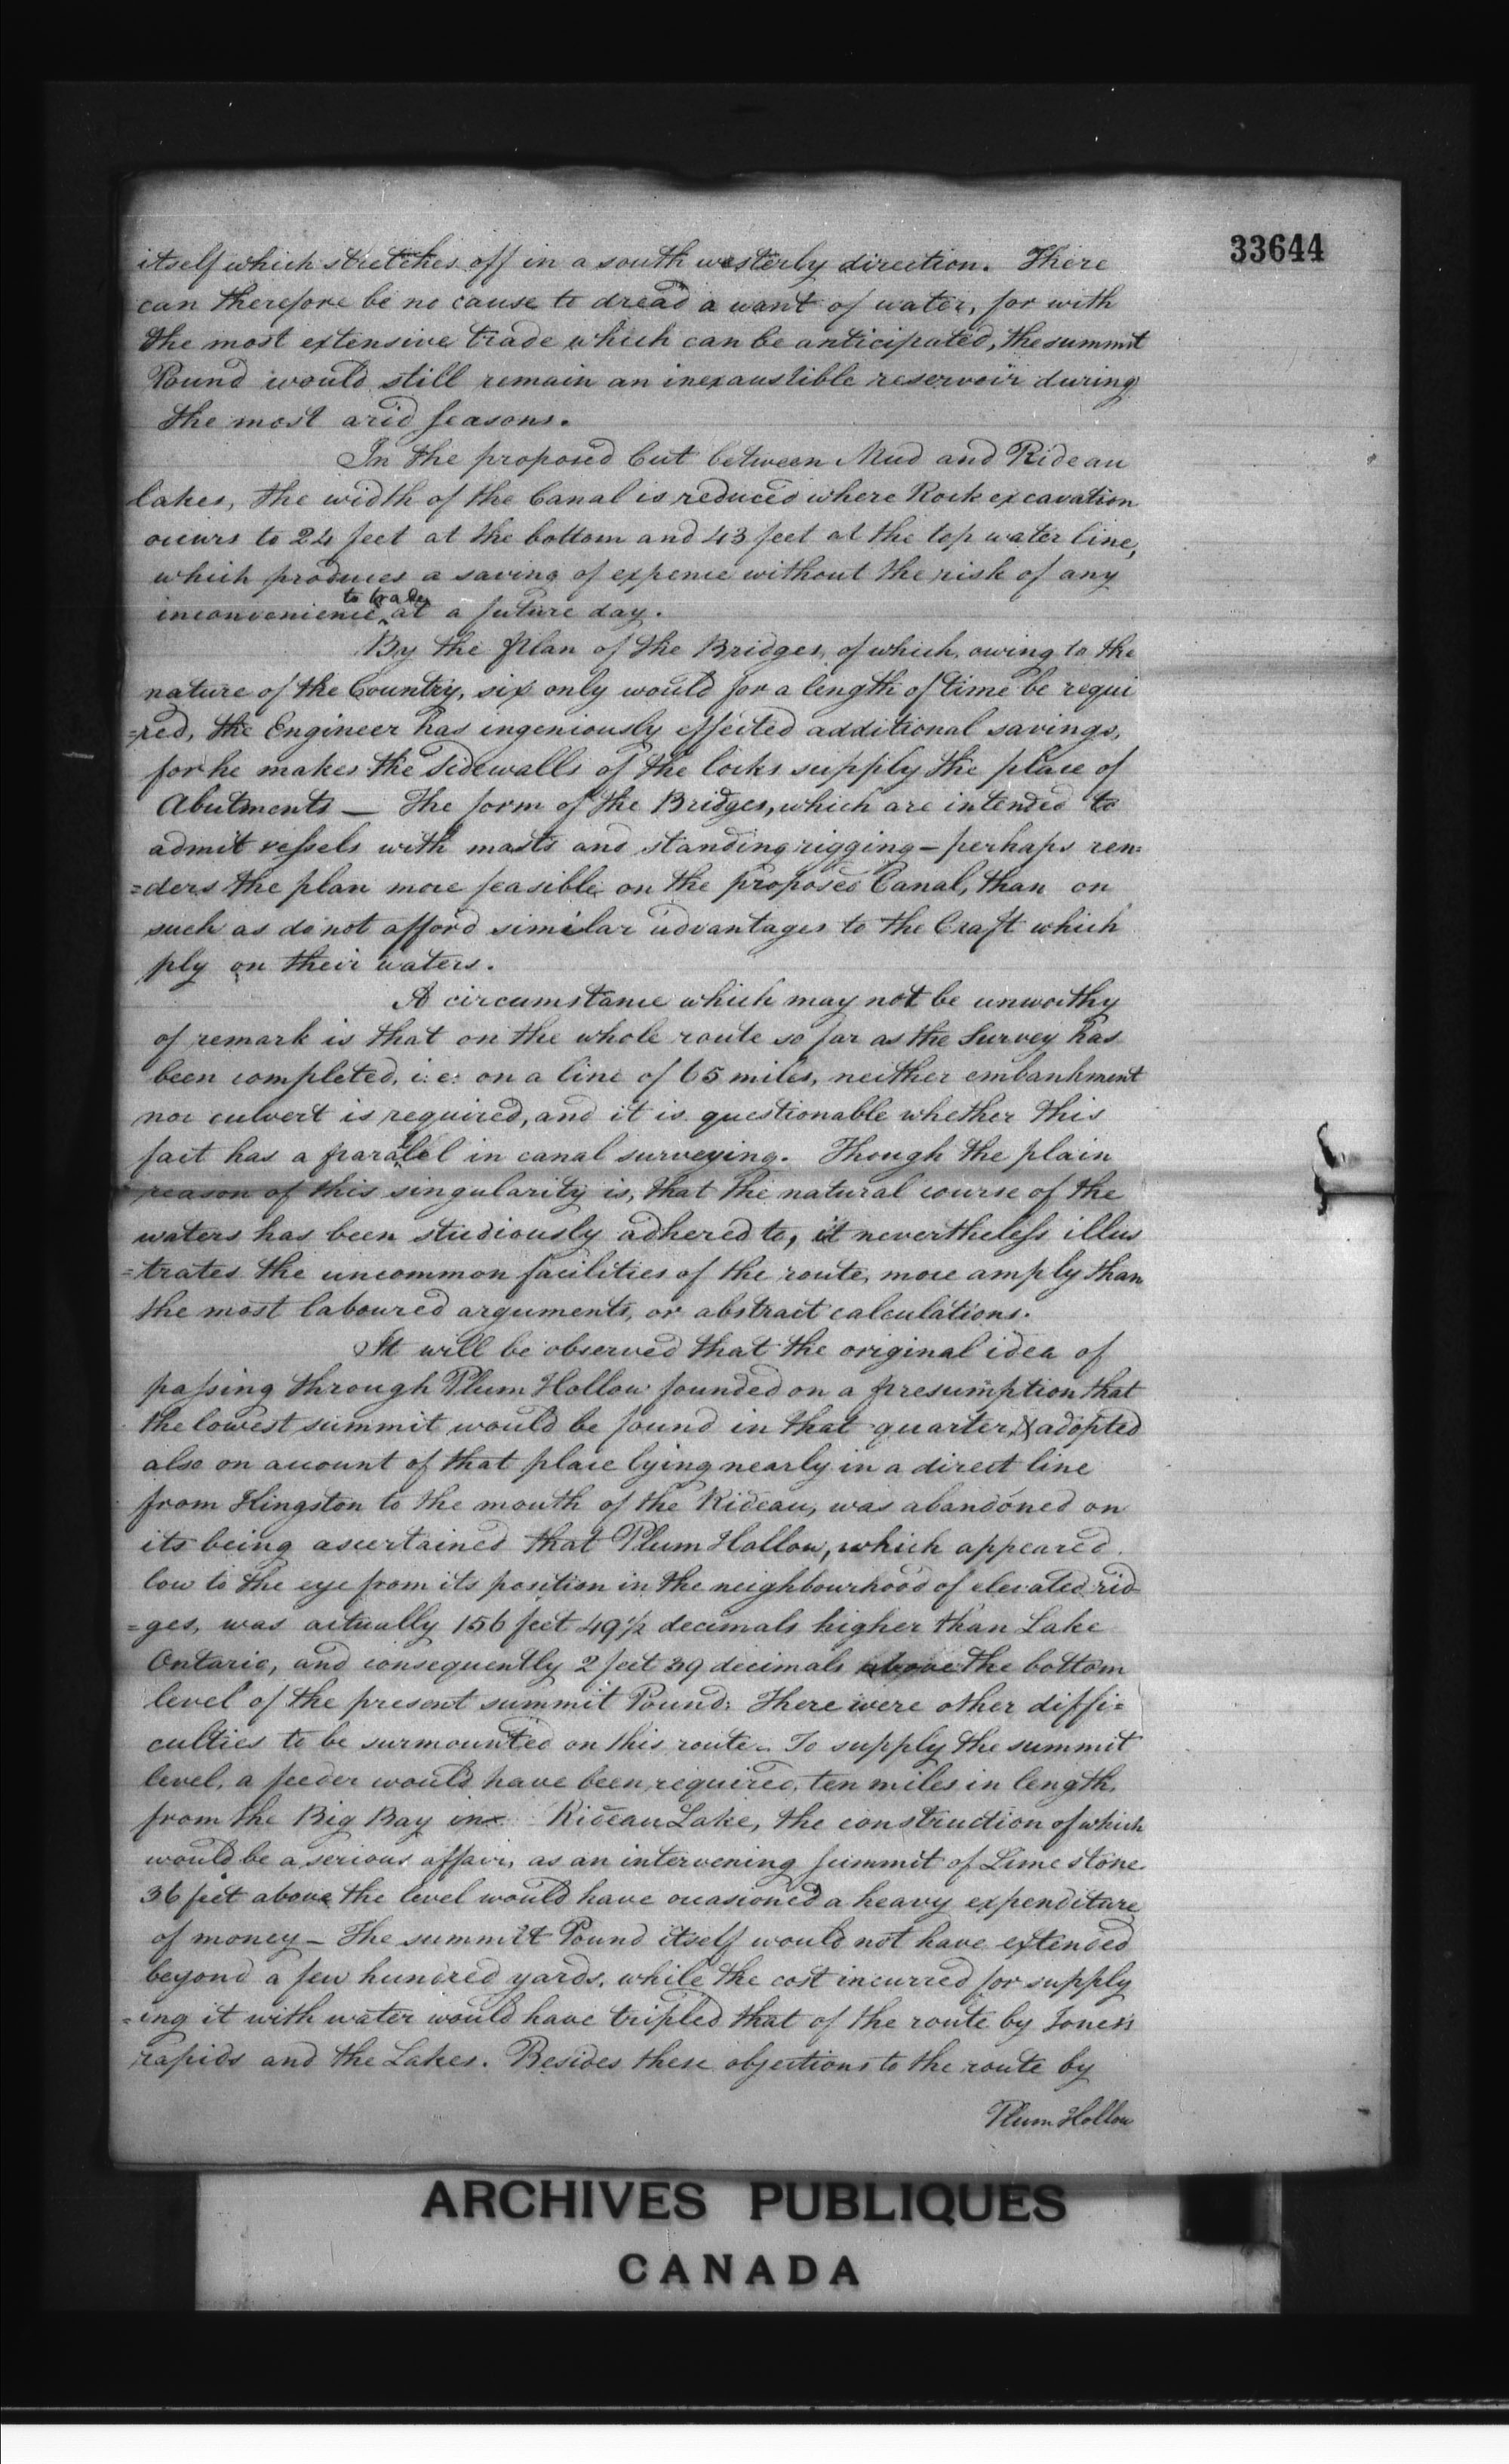 33644
itself which stretches off in a south westerly direction. There
can therefore be no cause to dread a want of water, for with
the most extensive trade which can be anticipated, the summit
Pound would still remain an inexaustible reservoir during
the most arid seasons.
In the proposed Cut between Mud and Rideau
lakes, the width of the Canal is reduced where Rock excavation
occurs to 24 feet at the bottom and 43 feet at the top water line,
which produces a saving of expence without the risk of any
to trade
inconvenience ‸ at a future day.
By the Plan of the Bridges, of which, owing to the
nature of the Country, six only would for a length of time be requi
=red, the Engineer has ingeniously effected additional savings,
for he makes the sidewalls of the locks supply the place of
Abutments — The form of the Bridges, which are intended to
admit vessels with masts and standing rigging — perhaps ren=
=ders the plan more feasible on the proposed Canal, than on
such as do not afford similar advantages to the Craft which
ply on their waters.
A circumstance which may not be unworthy
of remark is that on the whole route so far as the Survey has
been completed, i.e: on a line of 65 miles, neither embankment
nor culvert is required, and it is questionable whether this
fact has a parallel in canal surveying. Though the plain
reason of this singularity is, that the natural course of the
waters has been studiously adhered to, it nevertheless illus
=trates the uncommon facilities of the route, more amply than
the most laboured arguments, or abstract calculations.
It will be observed that the original idea of
passing through Plum Hollow founded on a presumption that
the lowest summit would be found in that quarter, & adopted
also on account of that place lying nearly in a direct line
from Kingston to the mouth of the Rideau, was abandoned on
its being ascertained that Plum Hollow, which appeared
low to the eye from its position in the neighbourhood of elevated rid
=ges, was actually 156 feet 49½ decimals higher than Lake
Ontario, and consequently 2 feet 39 decimals above the bottom
level of the present summit Pound: There were other diffi=
culties to be surmounted on this route. To supply the summit
level, a feeder would have been required, ten miles in length,
from the Big Bay in Rideau Lake, the construction of which
would be a serious affair, as an intervening summit of Lime stone
36 feet above the level would have occasioned a heavy expenditure
of money — The summit Pound itself would not have extended
beyond a few hundred yards, while the cost incurred for supply
=ing it with water would have tripled that of the route by Jones's
rapids and the Lakes. Besides these objections to the route by
Plum Hollow
ARCHIVES PUBLIQUES
CANADA